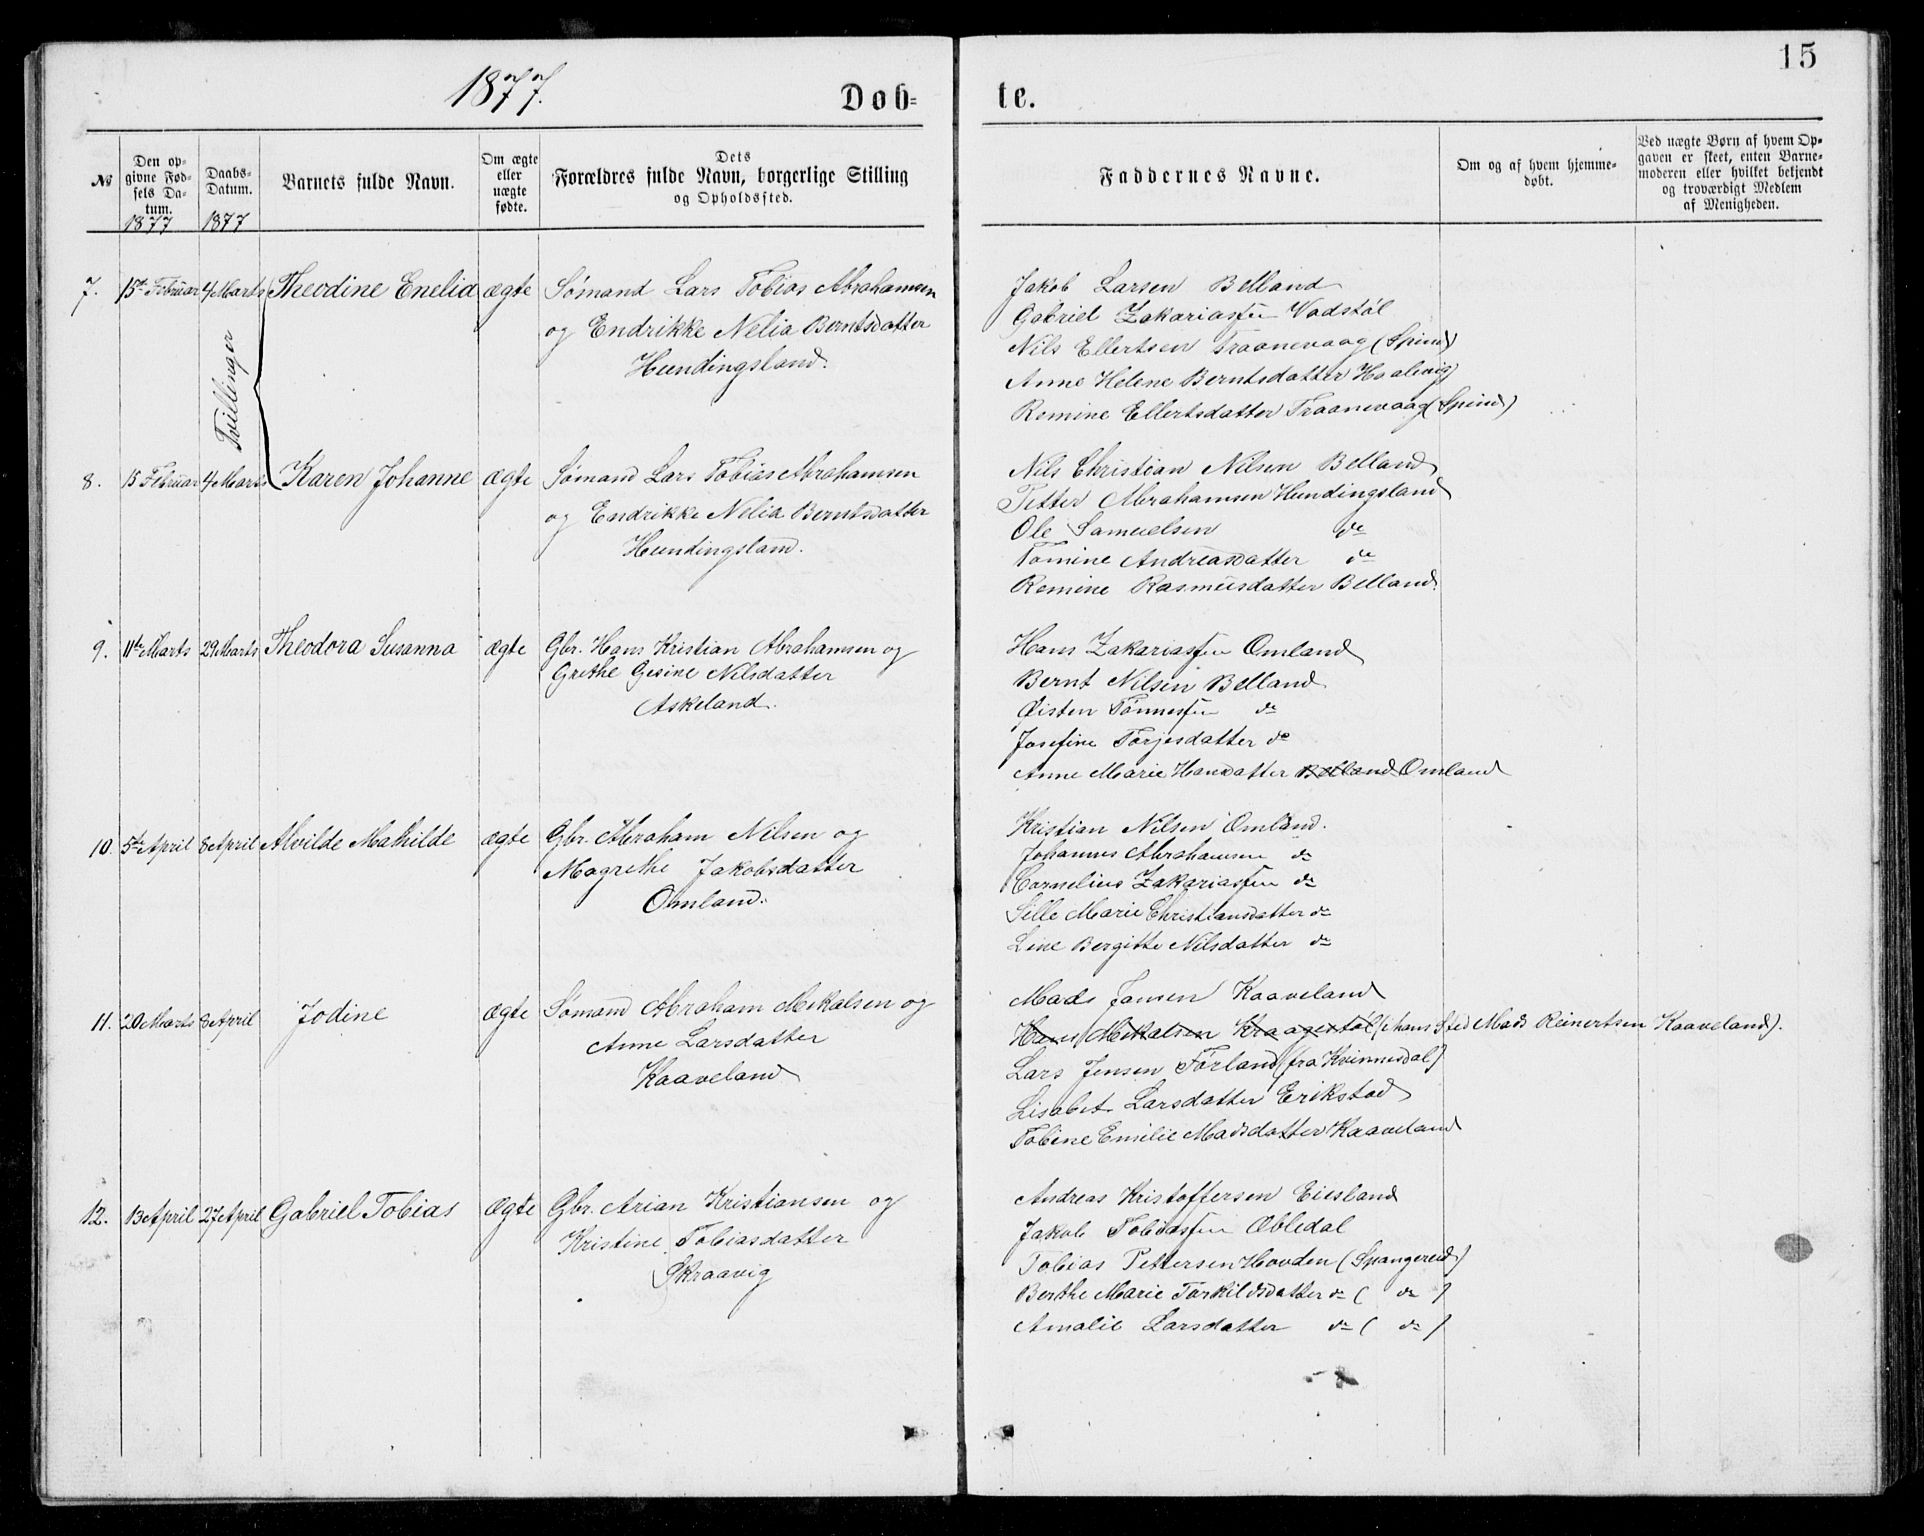 15
1877.
Døb=
te.
№
Den op=
givne Fød=
sels Da=
tum.
1877
Daabs=
Datum.
1877
Barnets fulde Navn.
Om ægte
eller
uægte
fødte.
Dets
Forældres fulde Navn, borgerlige Stilling
og Opholdssted.
Faddernes Navne.
Om og af hvem hjemme=
døbt.
Ved uægte Børn af hvem Op=
gaven er skeet, enten Barne=
moderen eller hvilket bekjendt
og troværdigt Medlem
af Menigheden.
7. 15de Februar 4 Marts Theodine Enelia ægte Sømand Lars Tobias Abrahamsen
og Endrikke Nelia Berntsdatter
Hundingsland.
Tvillinger
Jakob Larsen Belland
Gabriel Zakariassen Vadstøl
Nils Ellertsen Traanevaag (Spind)
Anne Helene Berntsdatter Haalivig
Romine Ellertsdatter Traanevaag (Spind)
8. 15 Februar 4 Marts Karen Johanne ægte Sømand Lars Tobias Abrahamsen
og Endrikke Nelia Berntsdatter
Hundingsland.
Nils Christian Nilsen Belland
Petter Abrahamsen Hundingsland
Ole Samuelsen do
Tomine Andreasdatter do
Romine Rasmusdatter Belland.
9. 11te Marts 29 Marts Theodora Susanna ægte Gbr. Hans Kristian Abrahamsen og
Grethe Gesine Nilsdatter
Askeland.
Hans Zakariassen Omland
Bernt Nilsen Belland
Øisten Tønnessen do
Josefine Torjesdatter do
Anne Marie Hansdatter Belland Omland
10. 5te April 8 April Alvilde Mathilde ægte Gbr. Abraham Nilsen og
Magrethe Jakobsdatter
Omland.
Kristian Nilsen Omland.
Johannes Abrahamsen do
Cornelius Zakariassen do
Sille Marie Christiansdatter do
Line Bergitte Nilsdatter do
11. 20 Marts 8 April Jodine ægte Sømand Abraham Mekalsen og
Anne Larsdatter
Kaaveland
Mads Jansen Kaaveland
Hans Mekalsen Kraagestøl (i hans Sted Mads Reinertsen Kaaveland).
Lars Jensen Førland (fra Kvinnesdal)
Lisabet Larsdatter Erikstad
Tobine Emilie Madsdatter Kaaveland
12. 13 April 27 April Gabriel Tobias Ægte Gbr. Arian Kristiansen og
Kristine Tobiasdatter
Skraavig
Andreas Kristoffersen Eiesland
Jakob Tobiassen Øbledal
Tobias Pettersen Hovden (Spangereid)
Berthe Marie Torkildsdatter do ( do )
Amalie Larsdatter do ( do )